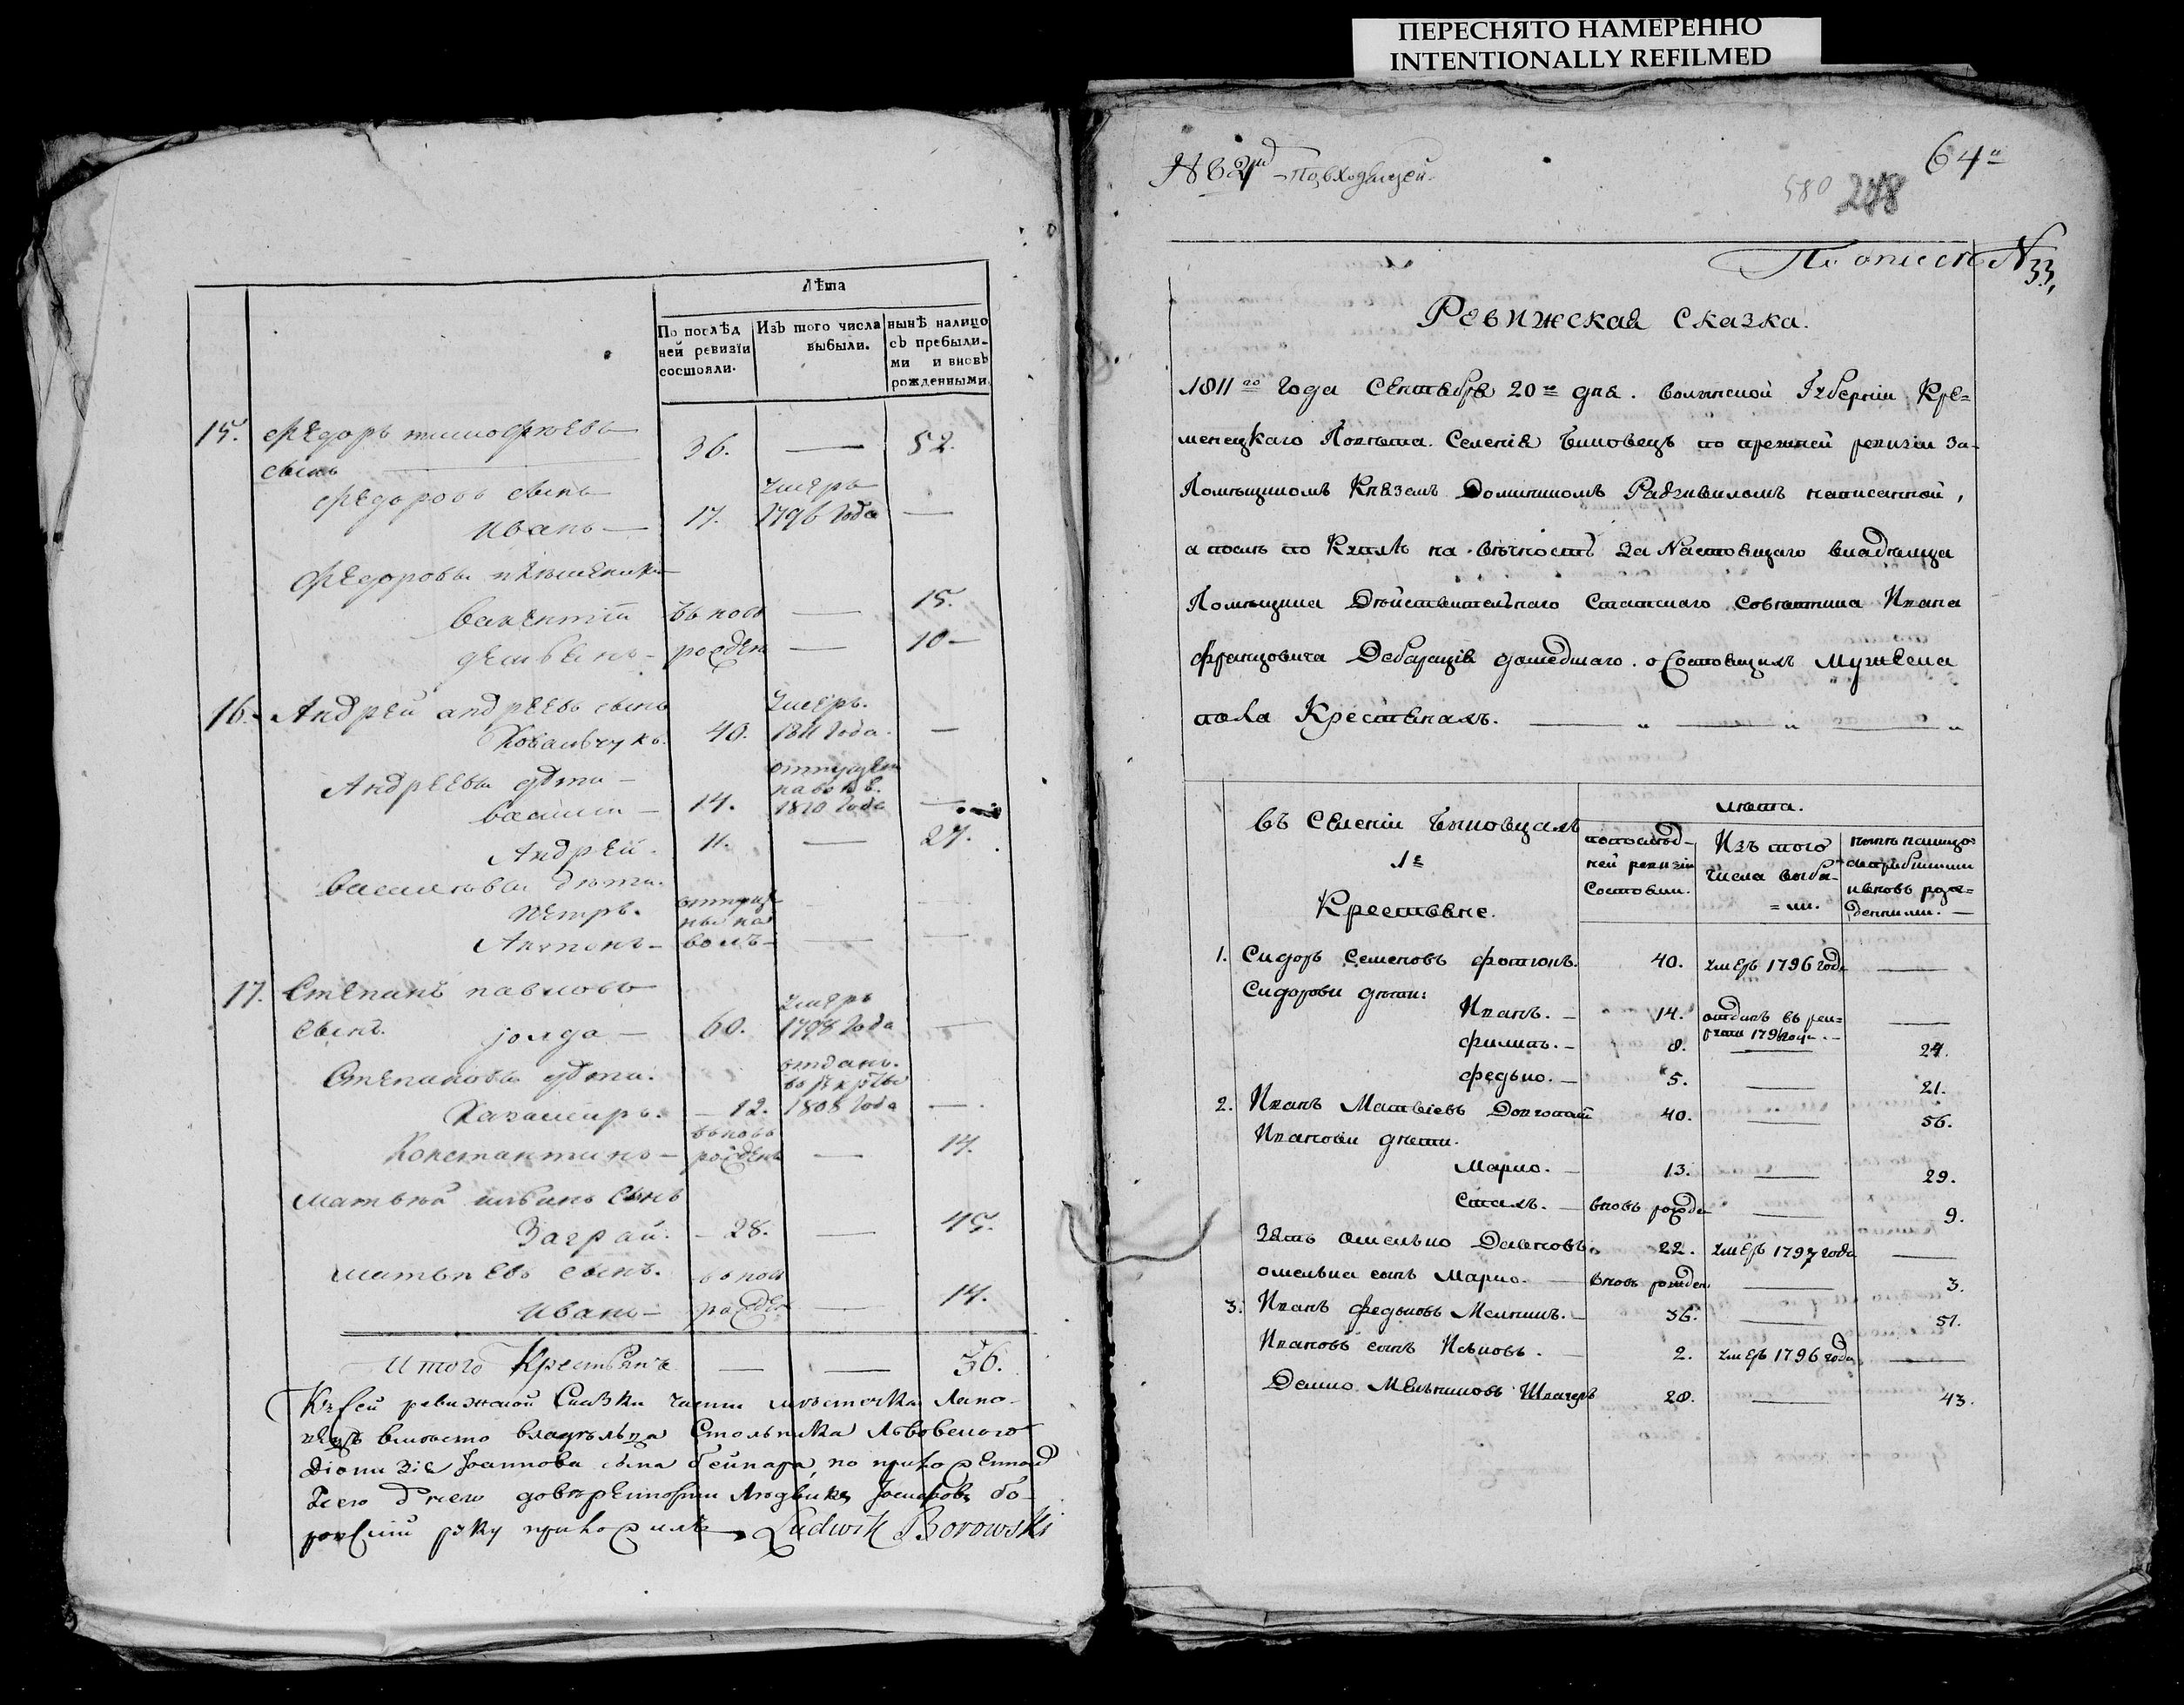 ПЕРЕСНЯТО НАМЕРЕННО
INTENTIONALLY REFILMED
Лѣта
По послѣд
ней ревизїи
состояли.
Изъ того числа
выбыли.
нынѣ налицо
съ пребылы-
ми и вновь
рожденными.
15. Федоръ тимофѣевъ
сынъ 36. — 52.
Федоровъ сынъ умеръ
иванъ — 17. 1796 года —
Федоровы племеники
валентій вьновъ — 15.
демьянъ — рожден — 10 —
16. Андрей андреевъ сынъ умеръ.
Ковальчукъ. 40. 1811 года. —
Андреевы дѣти — отпущен
на волю.
василий — 14. 1810 года —
Андрей. 11. — 27.
васильевы дѣти.
петръ. отпуще
ны на
Антонъ — волъ — — —
17. Степанъ павловъ умеръ
сынъ. 60. 1798 года —
Степановы дѣти. отданъ.
в рекруты
Казимиръ. — 12. 1808 года —
вьновъ
Константинъ — рожденъ — 14.
матьвѣй сынъ
Заграй. — 28. — 45.
матьвѣевъ сынъ. вьнов
иванъ — рожден — 14.
Итого Крестьянъ — — 36.
Къ сей ревижской Сказки части мѣстечка
вмѣсто владѣльца Стольника Львовского
Іоаннова сына по
довѣренности Людвикъ
руку приложилъ Ludwik Borowski
№ 62й 64
580 248
По описи № 33,
Ревижская Сказка.
1811го года Сентября 20го дня. Волынской Губерніи Кре=
менецкаго Повѣта. Селенія Быковецъ по прежней ревизіи за
Помѣщикомъ Княземъ Доминикомъ Радзивиломъ написанной,
а посль по Куплѣ на вѣчность за Настоящаго владельца
Помѣщика Дѣйствительнаго Статскаго Совѣтника Ивана
Францовича дошедшаго. о Состоящихъ Мужеска
пола Крестьянахъ. — " — " — "
въ Селеніи Быковцахъ
1е
Крестьяне.
лѣта.
попослѣд-
ней ревизіи
Состояли.
Изъ того
числа выбы-
= ли.
нынѣ налицо
съ прибылыми
ивновь рож=
денными. —
1. Сидоръ Семеновъ фотюкъ. 40. умеръ 1796 года —
Сидоровы дѣти:
Иванъ. — 14. отданъ въ рек=
руты 1796 года. —
филипъ. — 8. — 24.
федько. — 5. — 21.
2. Иванъ Матвіевъ 40. — 56.
Ивановы дѣти.
Марко. — 13. — 29.
Стахъ. — вновь рожде — 9.
Зять Омелько 22. умеръ 1797 года —
омелька сынъ Марко. — вновь рожден — 3.
3. Иванъ федьковъ Мельникъ. — 36. — 51.
Ивановъ сынъ Яковъ. — 2. умеръ 1796 года —
Мельниковъ Швагеръ 28. — 43.